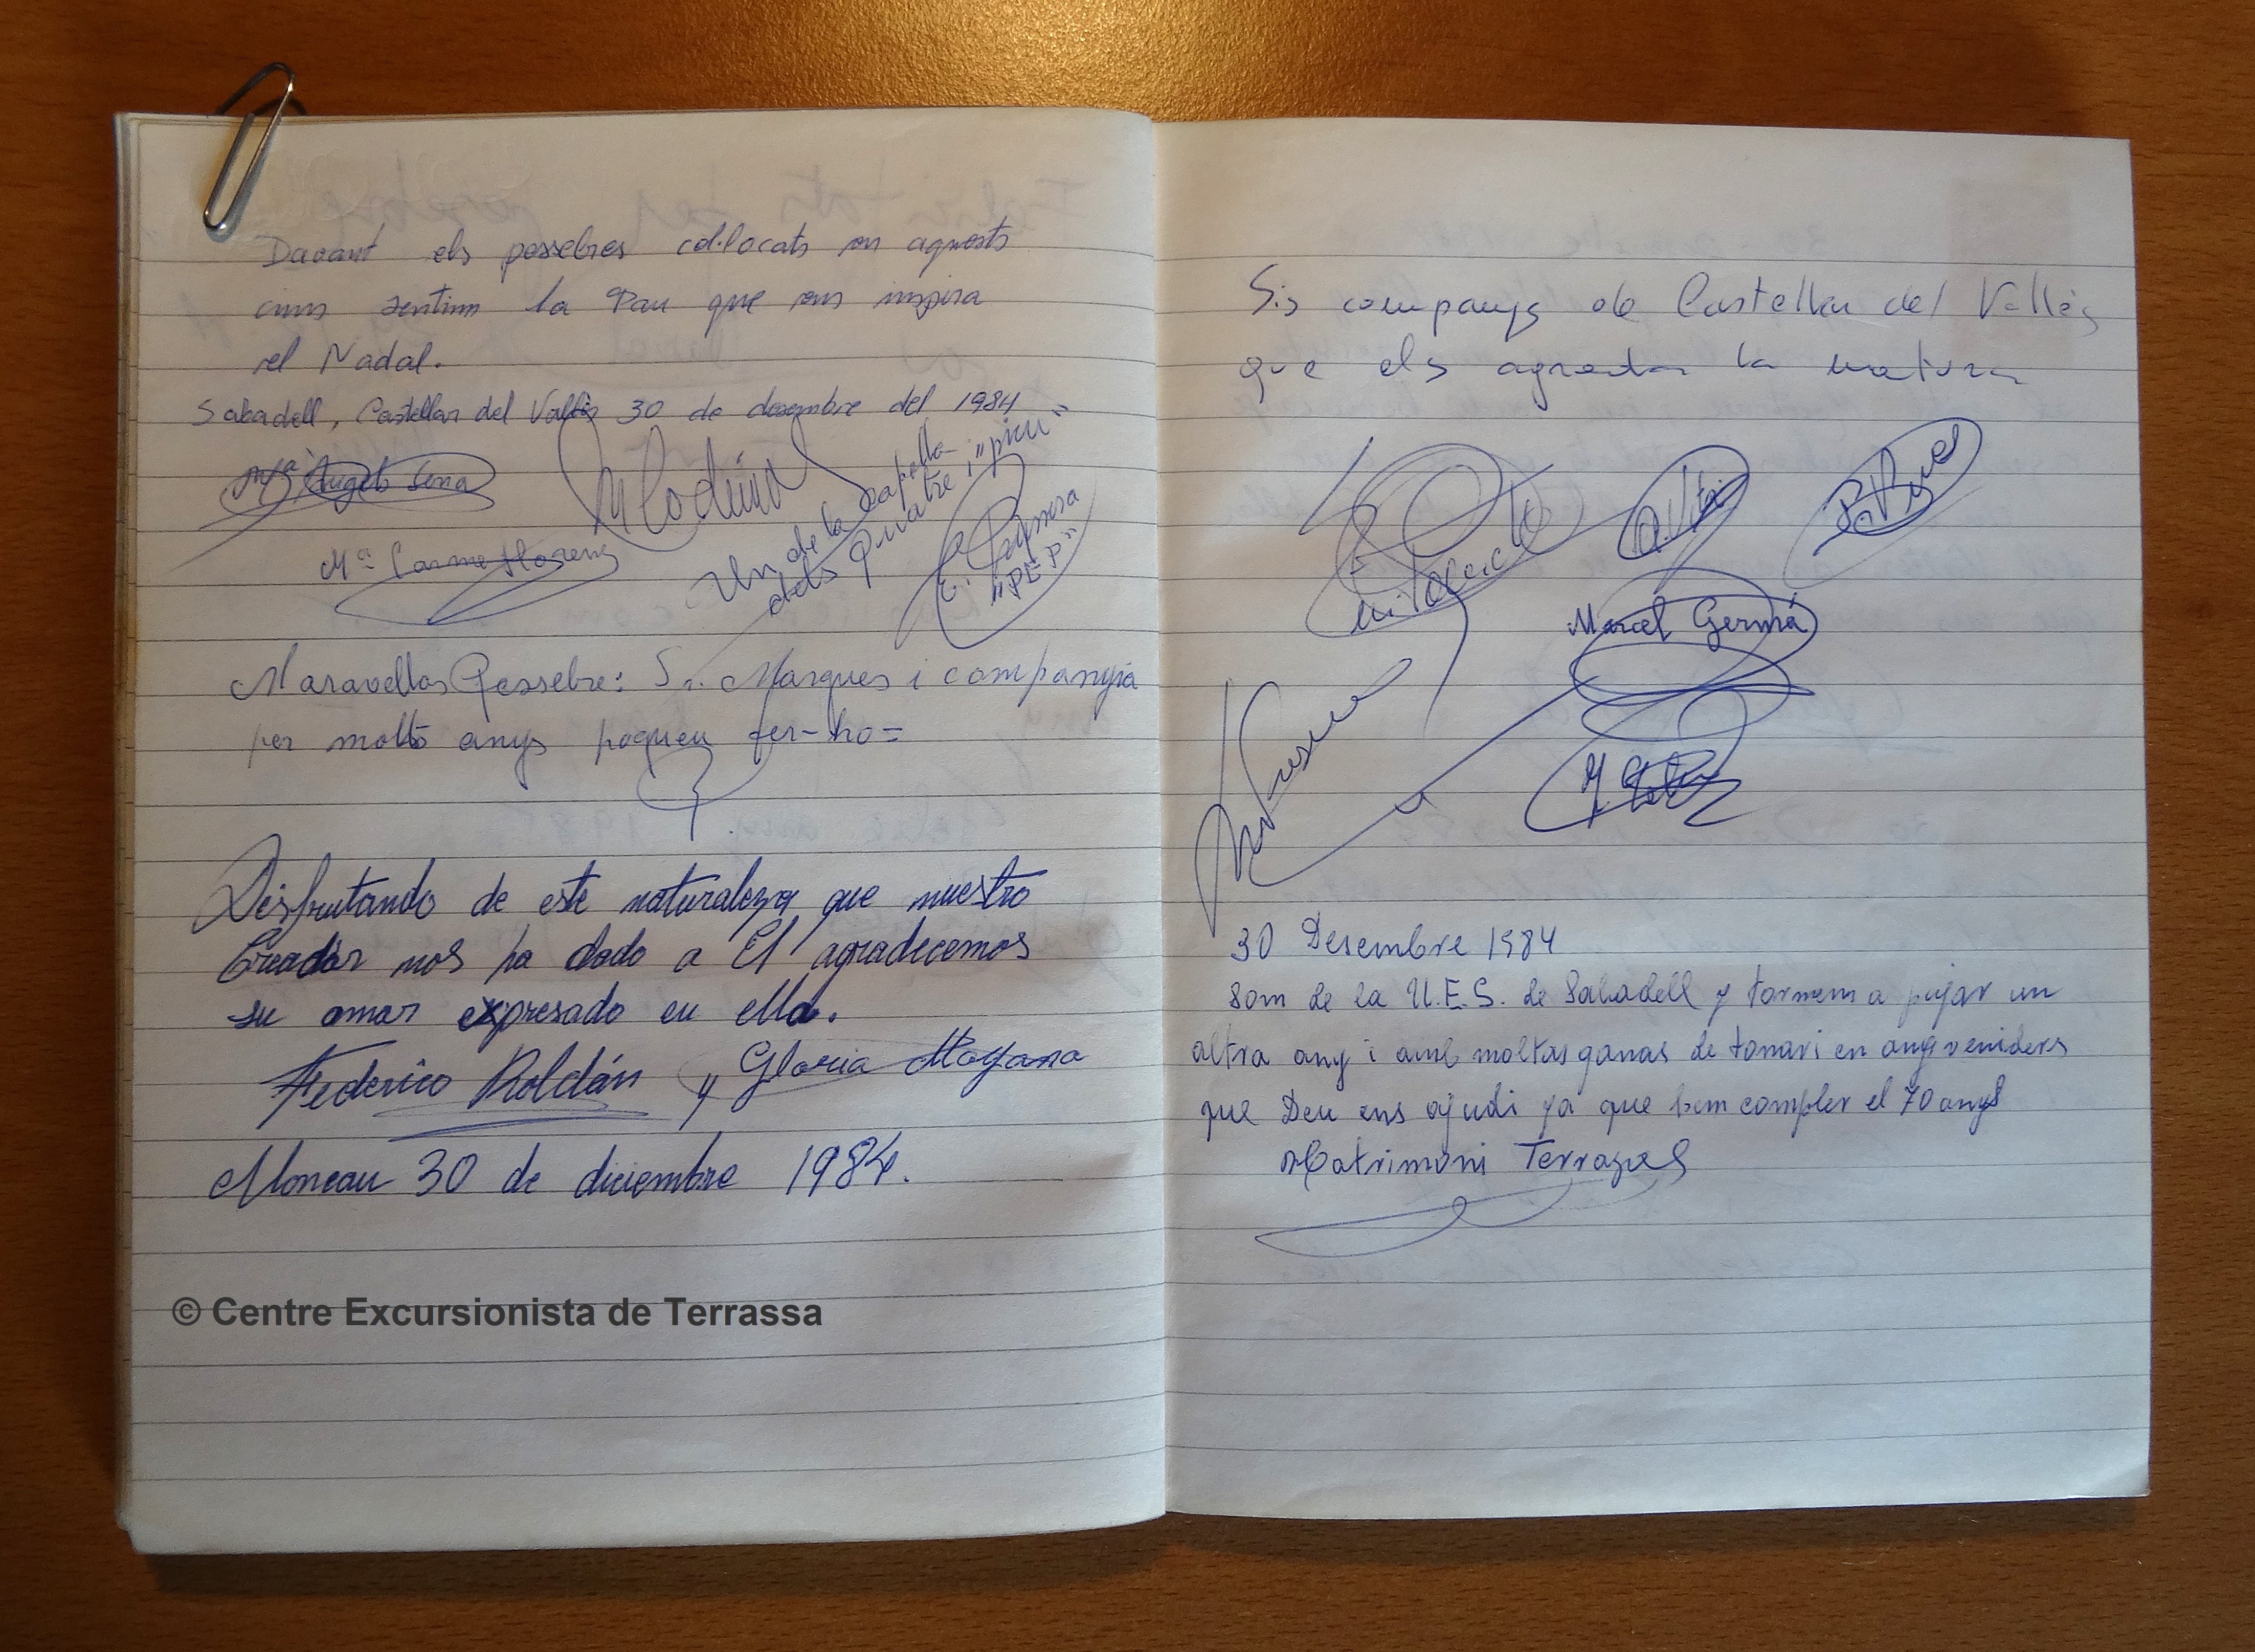 Davant els pessebres col·locats en aquests
cims sentim la Pau que ens inspira
el Nadal.
Sabadell, Castellar del Vallès 30 de desembre del 1984
Mª Àngels Serra
Mª Carme Llorens
Un de la capella
dels quatre i "picu"
"PEP"
Maravellos Pessebre: Sr. Marques i companyia
per molts anys pogueu fer-ho=
Disfrutando de este naturaleza que nuestro
Creador nos ha dado a El agradecemos
su amor expresado en ella.
Federico Roldán y Gloria Moyano
Moncau 30 de diciembre 1984.
© Centre Excursionista de Terrassa
Sis companys de Castellar del Vallès
que els agrada la natura
Marcel Germà
30 Desembre 1984
Som de la U.E.S. de Sabadell y tornem a pujar un
altra any i amb moltas ganas de tonari en anys veniders
que Deu ens ajudi ya que hem compler el 70 anys
Matrimoni Terrages